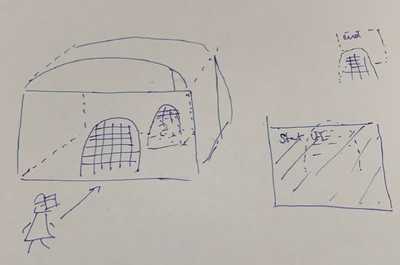 end
Start